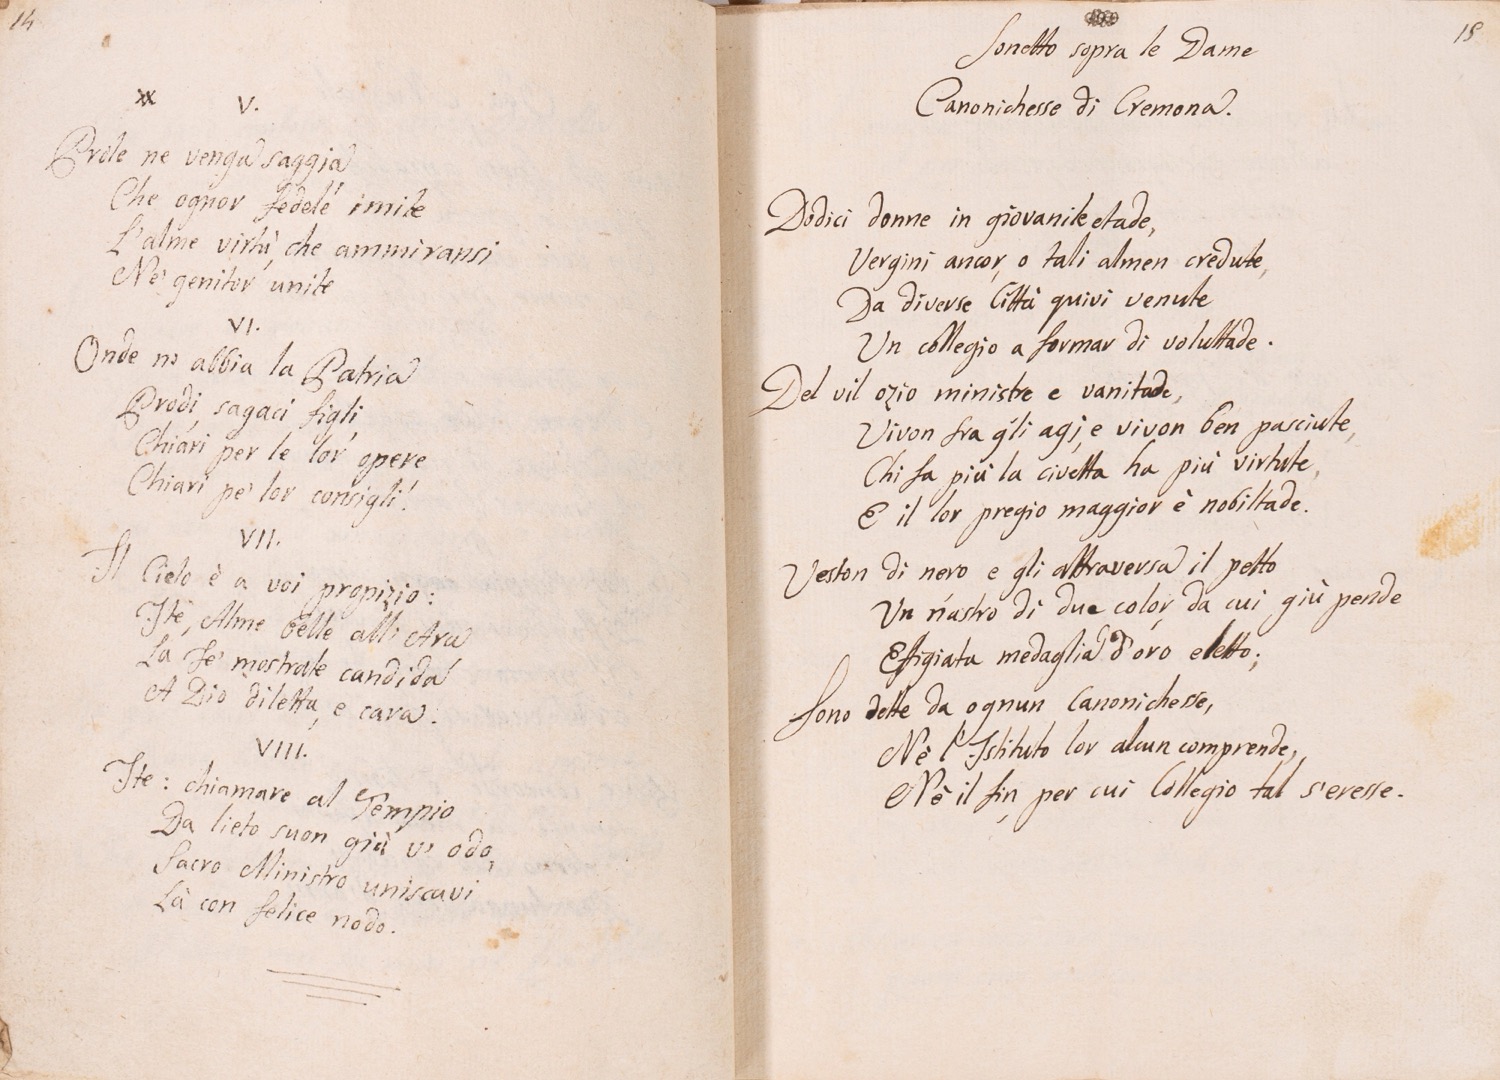 14
V.
Prole ne venga saggia
Che ognor fedele imite
L'alme virtù, che ammiransi
Ne' genitor unite
VI.
Onde n' abbia la Patria
Prodi, sagaci figli,
Chiari per le lor opere
Chiari pe' lor consigli!
VII.
Il Cielo è a voi propizio:
Ite, Alme belle all' Ara
La Fe' mostrate candida
A Dio diletta, e cara.
VIII.
Ite: chiamare al Tempio
Da lieto suon già v' odo,
Sacro Ministro uniscavi
Là con felice nodo.
15
Sonetto sopra le Dame
Canonichesse di Cremona.
Dodici donne in giovanile etade,
Vergini ancor, o tali almen credute,
Da diverse Città quivi venute
Un collegio a formar di voluttade.
Del vil ozio ministre e vanitade,
Vivon fra gli agj, e vivon ben pasciute,
Chi fa più la civetta ha più virtute,
E il lor pregio maggior è nobiltade.
Veston di nero e gli attraversa il petto
Un nastro di due color, da cui giù pende
Effigiata medaglia d'oro eletto;
Sono dette da ognun Canonichesse,
Nè l' Istituto lor alcun comprende,
Nè il fin, per cui Collegio tal s'eresse.